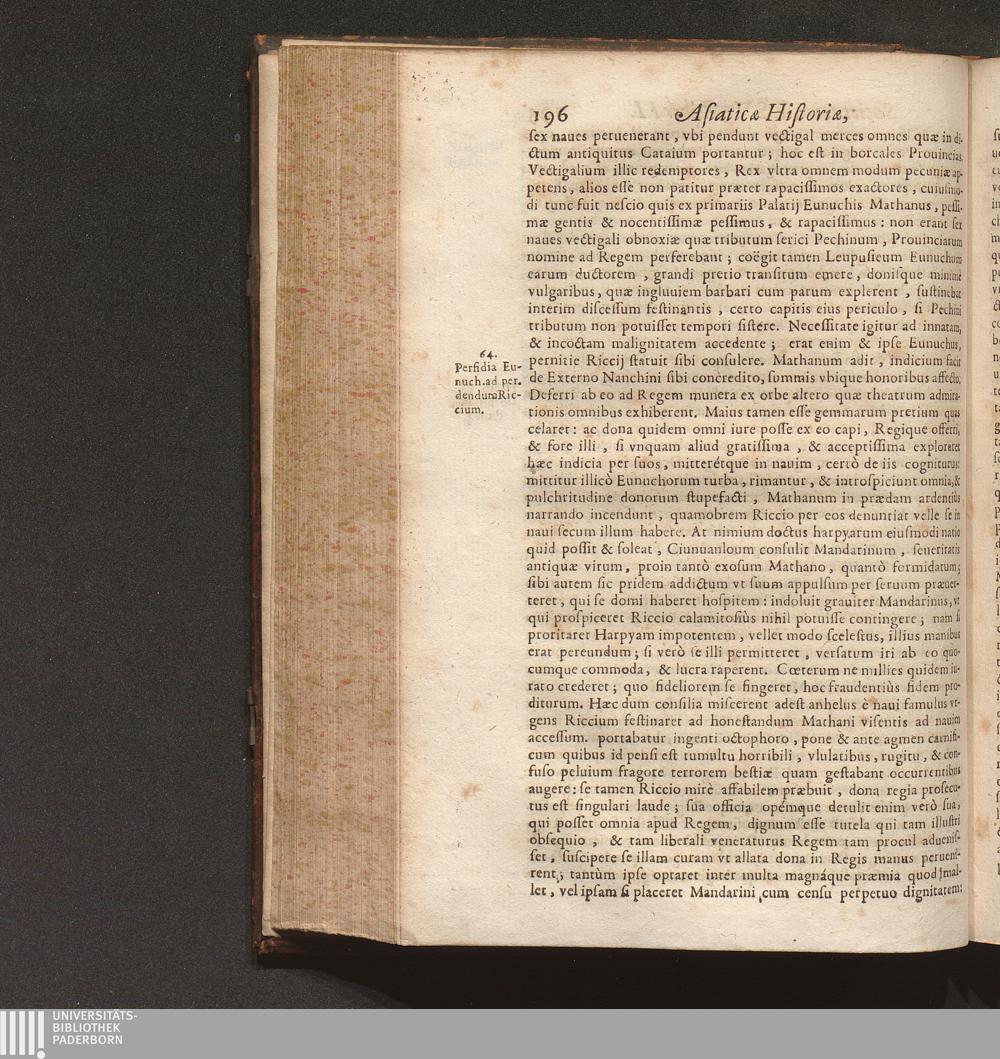 196 Asiaticæ Historiæ,
sex naues peruenerant, vbi pendunt vectigal merces omnes quæ in di-
ctum antiquitus Cataium portantur; hoc est in boreales Prouincias.
Vectigalium illic redemptores, Rex vltra omnem modum pecuniæ ap-
petens, alios esse non patitur præter rapacissimos exactores, cuiusmo-
di tunc fuit nescio quis ex primariis Palatij Eunuchis Mathanus, pessi-
mæ gentis & nocentissimæ pessimus, & rapacissimus: non erant sex
naues vectigali obnoxiæ quæ tributum serici Pechinum, Prouinciarum
nomine ad Regem perferebant; coëgit tamen Leupusieum Eunuchum
earum ductorem, grandi pretio transitum emere, donisque minimè
vulgaribus, quæ ingluuiem barbari cum parum explerent, sustinebat
interim discessum festinantis, certo capitis eius periculo, si Pechini
tributum non potuisset tempori sistere. Necessitate igitur ad innatam,
& incoctam malignitatem accedente; erat enim & ipse Eunuchus,
pernitie Riccij statuit sibi consulere. Mathanum adit, indicium facit
de Externo Nanchini sibi concredito, summis vbique honoribus affecto,
Deferri ab eo ad Regem munera ex orbe altero quæ theatrum admira-
tionis omnibus exhiberent. Maius tamen esse gemmarum pretium quas
celaret: ac dona quidem omni iure posse ex eo capi, Regique offerri,
& fore illi, si vnquam aliud gratissima, & acceptissima exploraret
hæc indicia per suos, mitterétque in nauim, certò de iis cogniturus:
mittitur illicò Eunuchorum turba, rimantur, & introspiciunt omnia, &
pulchritudine donorum stupefacti, Mathanum in prædam ardentiùs
narrando incendunt, quamobrem Riccio per eos denuntiat velle se in
naui secum illum habere. At nimium doctus harpyarum eiusmodi natio
quid possit & soleat, Ciunuanloum consulit Mandarinum, seueritatis
antiquæ virum, proin tantò exosum Mathano, quantò formidatum;
sibi autem sic pridem addictum vt suum appulsum per seruum præuer-
teret, qui se domi haberet hospitem: indoluit grauiter Mandarinus, vt
qui prospiceret Riccio calamitosiùs nihil potuisse contingere; nam si
proritaret Harpyam impotentem, vellet modo scelestus, illius manibus
erat pereundum; si verò se illi permitteret, versatum iri ab eo quo-
cumque commoda, & lucra raperent. Cœterum ne millies quidem iu-
rato crederet; quo fideliorem se fingeret, hoc fraudentiùs fidem pro-
diturum. Hæc dum consilia miscerent adest anhelus è naui famulus vr-
gens Riccium festinaret ad honestandum Mathani visentis ad nauim
accessum. portabatur ingenti octophoro, pone & ante agmen carnifi-
cum quibus id pensi est tumultu horribili, vlulatibus, rugitu, & con-
fuso peluium fragore terrorem bestiæ quam gestabant occurrentibus
augere: se tamen Riccio mirè affabilem præbuit, dona regia prosecu-
tus est singulari laude; sua officia opémque detulit enim verò sua,
qui posset omnia apud Regem, dignum esse tutela qni tam illustri
obsequio, & tam liberali veneraturus Regem tam procul aduenis-
set, suscipere se illam curam vt allata dona in Regis manus perueni-
rent; tantùm ipse optaret inter multa magnáque præmia quod mal-
let, vel ipsam si placeret Mandarini cum censu perpetuo dignitatem:
64.
Perfidia Eu-
nuch. ad per-
dendum Ric-
cium.
UNIVERSITÄTS-
BIBLIOTHEK
PADERBORN